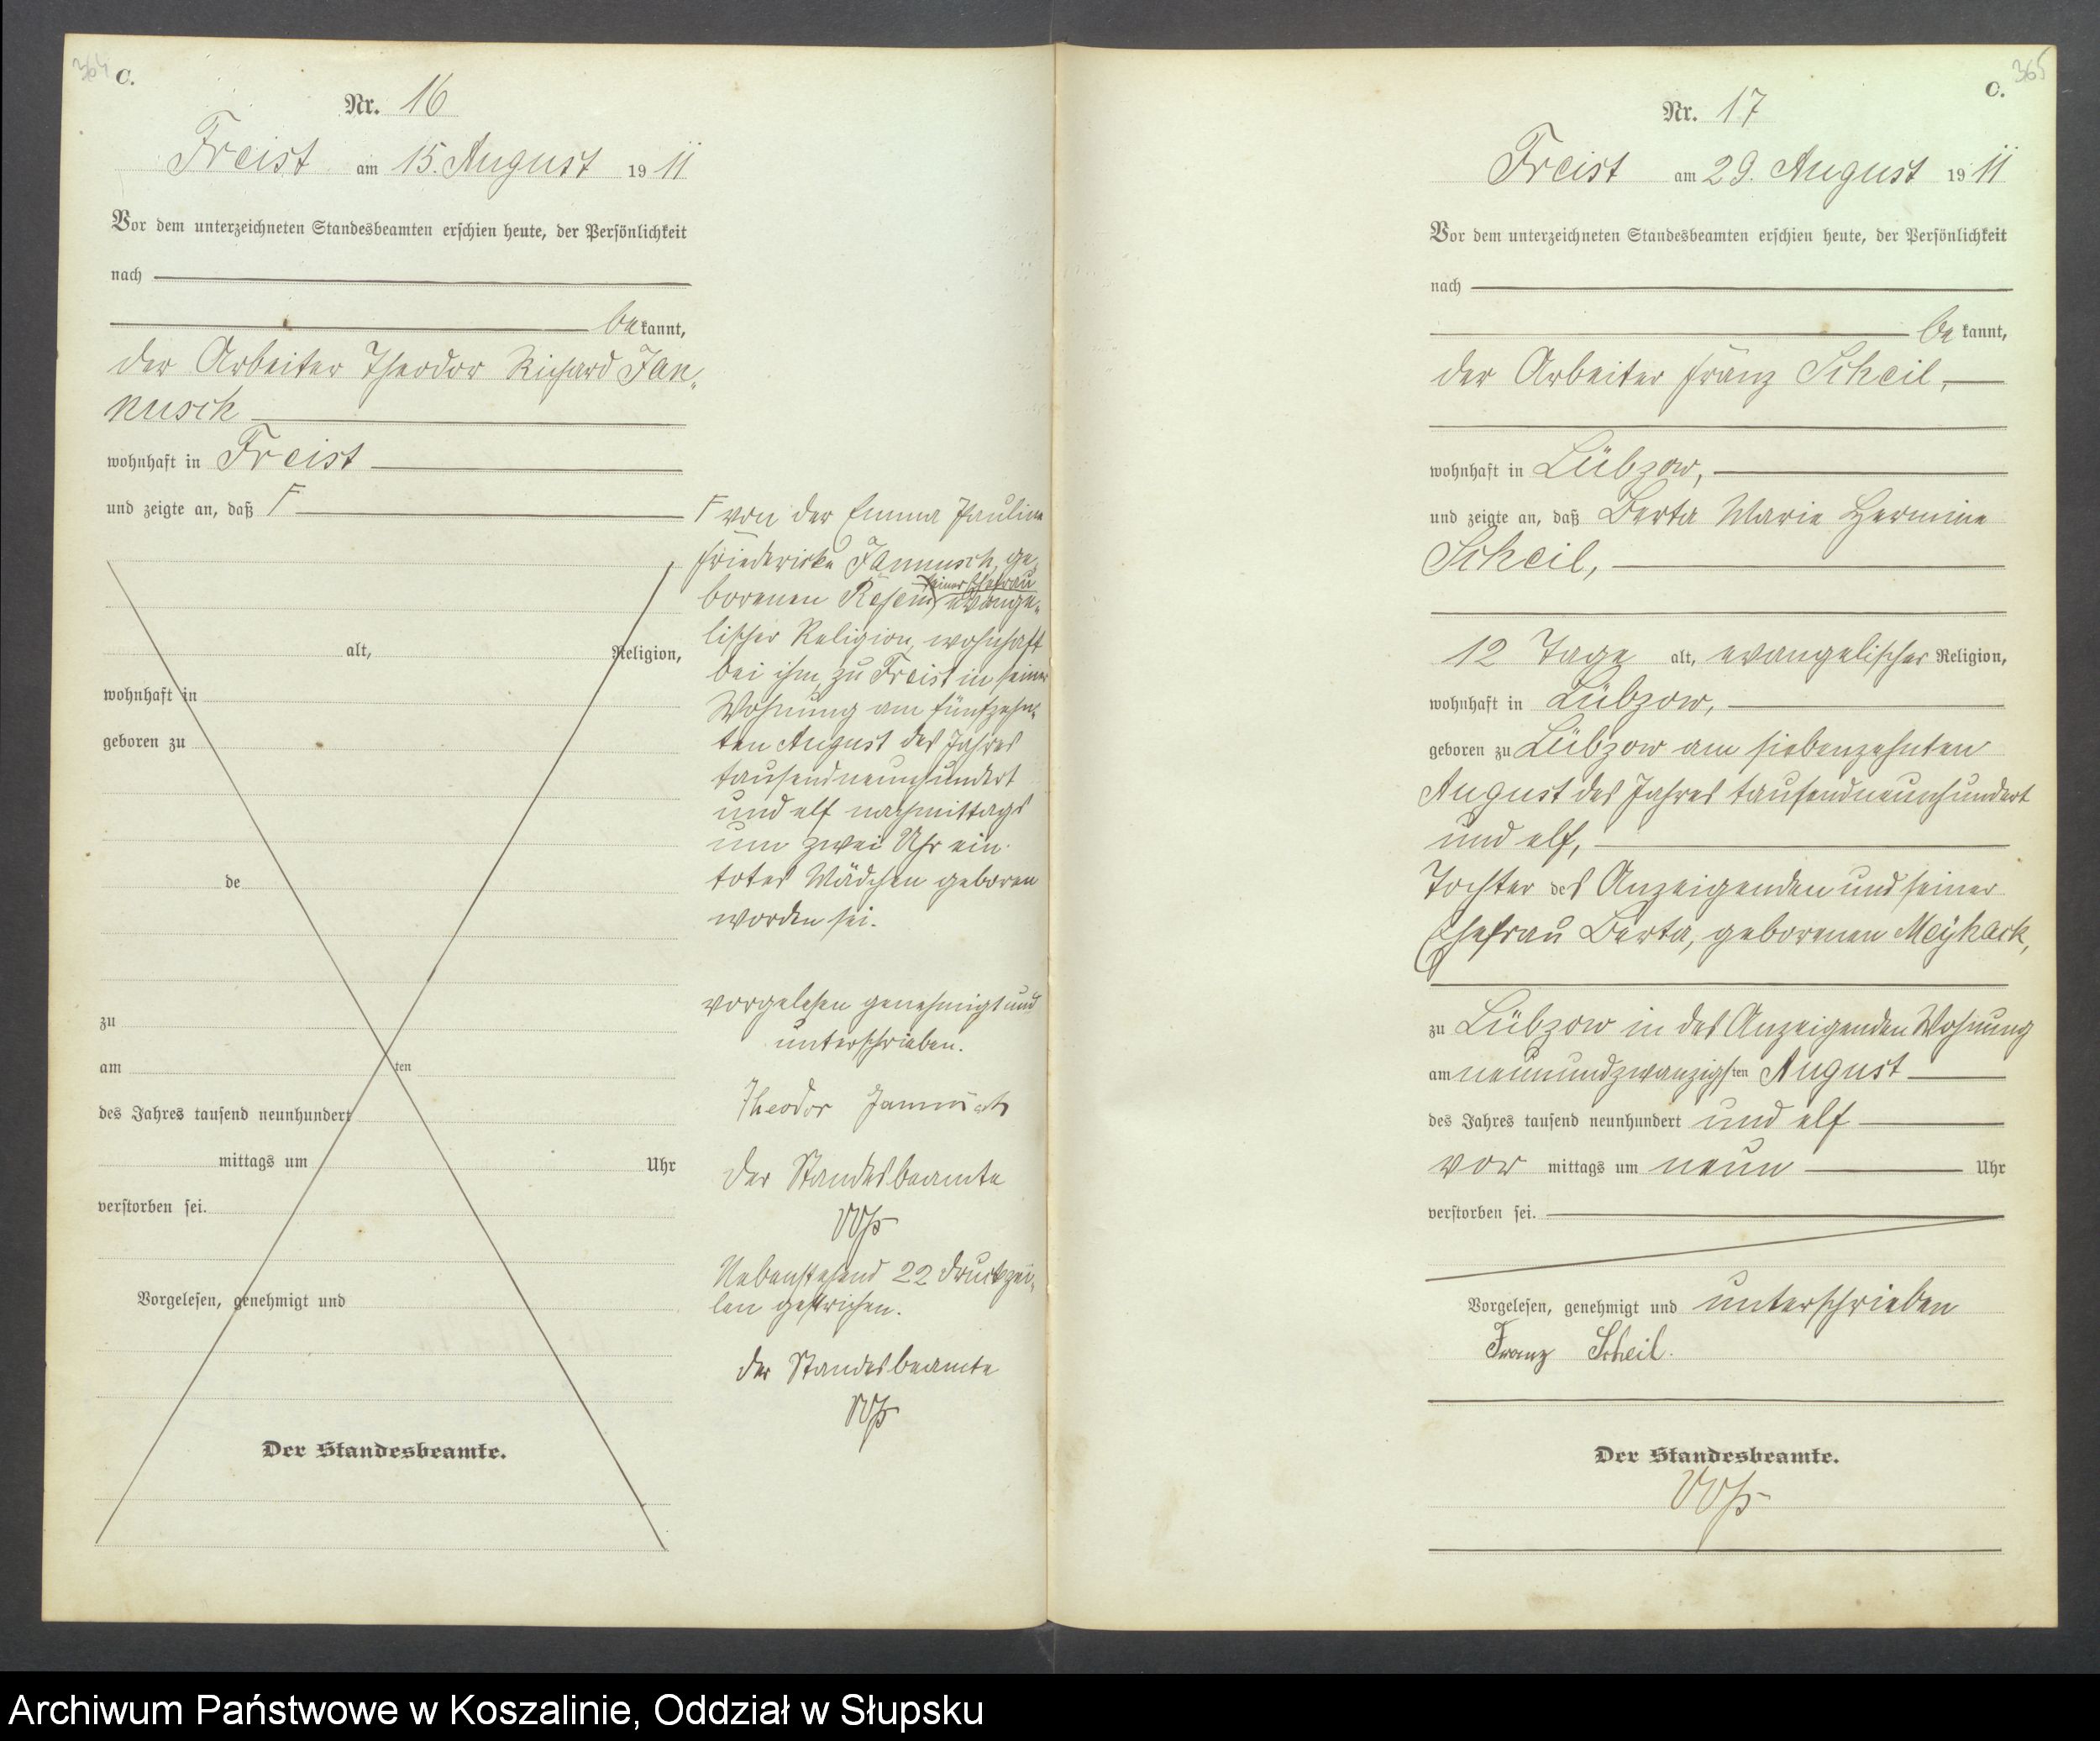 364
C.
Nr. 16
Freist am 15. August 1911
Vor dem unterzeichneten Standesbeamten erschien heute, der Persönlichkeit
nach
bekannt,
der Arbeiter Theodor Richard Jan-
nusch
wohnhaft in Freist
und zeigte an, daß F
alt, Religion,
wohnhaft in
geboren zu
de
zu
am ten
des Jahres tausend neunhundert
mittags um Uhr
verstorben sei.
Vorgelesen, genehmigt und
Der Standesbeamte.
F von der Emma Pauline
Friederieke Jannusch, ge-
seiner Ehefrau
borenen evange-
lischer Religion, wohnhaft
bei ihm, zu Freist in seiner
Wohnung am fünfzehn-
ten August des Jahres
tausendneunhundert
und elf nachmittags
um zwei Uhr ein
totes Mädchen geboren
worden sei.
vorgelesen genehmigt und
unterschrieben.
Theodor Jannusch
Der Standesbeamte
Nebenstehend 22 Druckzei-
len gestrichen.
Der Standesbeamte
365
C.
Nr. 17
Freist am 29. August 1911
Vor dem unterzeichneten Standesbeamten erschien heute, der Persönlichkeit
nach
bekannt,
der Arbeiter Franz Scheil,
wohnhaft in Lübzow,
und zeigte an, daß Berta Marie Hermine
Scheil,
12 Tage alt, evangelischer Religion,
wohnhaft in Lübzow,
geboren zu Lübzow am siebenzehnten
August des Jahres tausendneunhundert
und elf,
Tochter des Anzeigenden und seiner
Ehefrau Berta, geborenen Meyhack,
zu Lübzow in des Anzeigenden Wohnung
am neunundzwanzigsten August
des Jahres tausend neunhundert und elf
vor mittags um neun Uhr
verstorben sei.
Vorgelesen, genehmigt und unterschrieben
Franz Scheil.
Der Standesbeamte.
Archiwum Państwowe w Koszalinie, Oddział w Słupsku